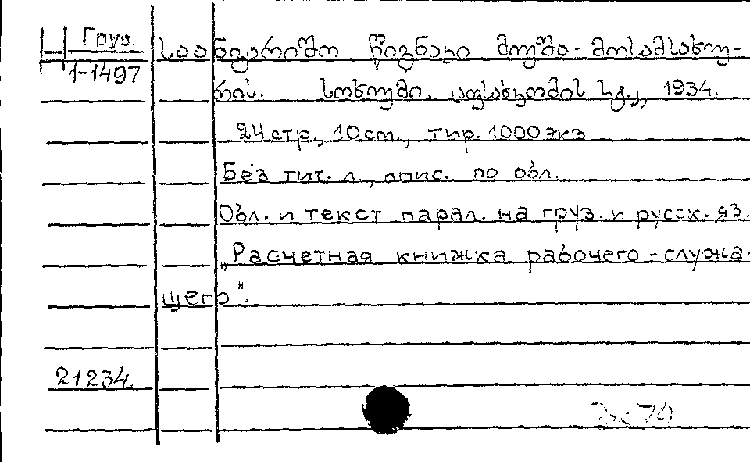 Груз
1-1497
საანგარიშო წიგნაკი მუშა-მოსამსახუ-
რის. სოხუმი. აფსახკომის სტ., 1934.
24 стр., 10 cm., тир. 1000 экз
Без тит. л., опис. по обл.
Обл. и текст парал. на груз. и русск. яз.
„Расчетная книжка рабочего-служа-
щего".
21234.